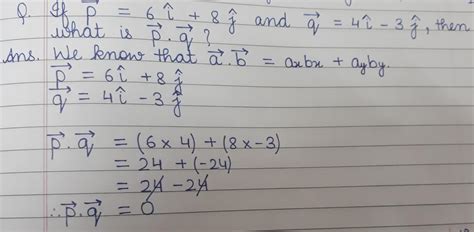 Q. If p⃗ = 6î + 8ĵ and q⃗ = 4î - 3ĵ, then
what is p⃗.q⃗ ?
Ans. We know that a⃗.b⃗ = axbx + ayby.
p⃗ = 6î + 8ĵ
q⃗ = 4î - 3ĵ
p⃗.q⃗ = (6 x 4) + (8 x -3)
= 24 + (-24)
= 24 - 24
∴ p⃗.q⃗ = 0